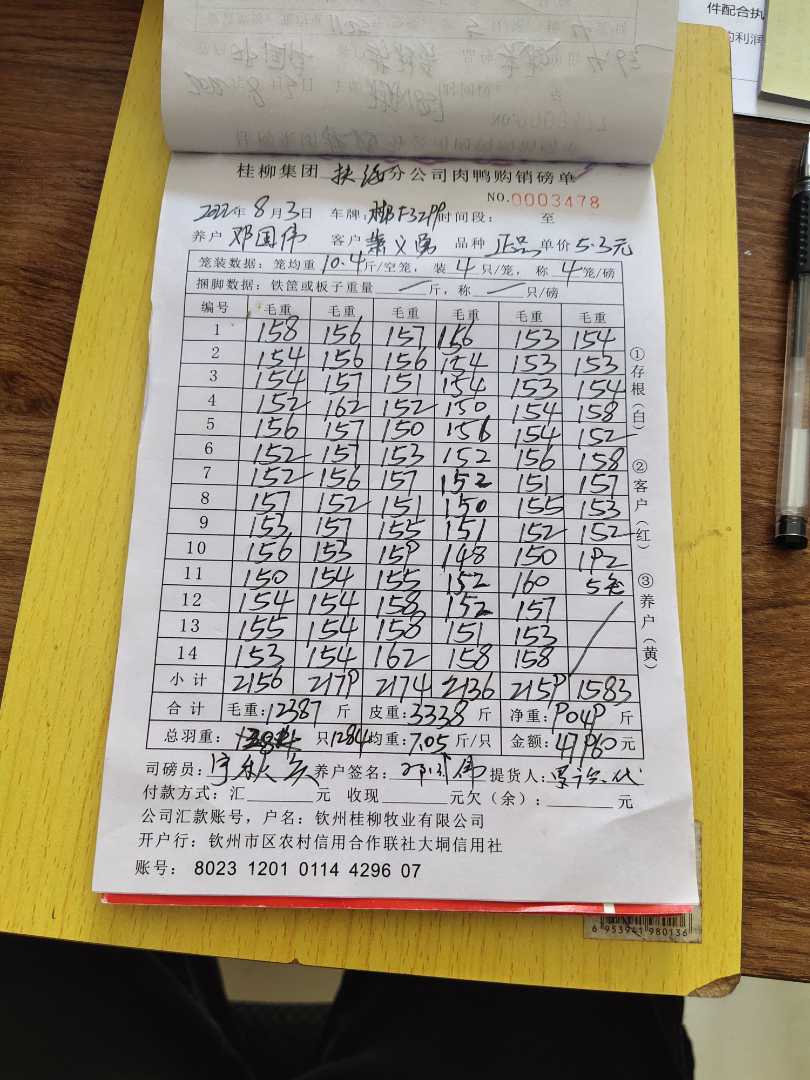 件配合执
的利润
桂柳集团 扶绥 分公司肉鸭购销磅单
NO.0003478
2022年 8月3日 车牌: 柳F32PP 时间段: 至
养户 邓国伟 客户 萧义勇 品种 正品 单价 5.3元
笼装数据: 笼均重 10.4 斤/空笼, 装 4 只/笼, 称 4 笼/磅
捆脚数据: 铁筐或板子重量 — 斤, 称 — 只/磅
编号 毛重 毛重 毛重 毛重 毛重 毛重
1 158 156 157 156 153 154
2 154 156 156 154 153 153
3 154 157 151 154 153 154
4 152 162 152 150 154 158
5 156 157 150 156 154 152
6 152 157 153 152 156 158
7 152 156 157 152 151 157
8 157 152 151 150 155 153
9 153 157 155 151 152 152
10 156 153 15P 148 150 1P2
11 150 154 155 152 160 5笼
12 154 154 158 152 157
13 155 154 158 151 153
14 153 154 162 158 158
小计 2156 217P 2174 2136 215P 1583
合计 毛重: 12387 斤 皮重: 3338 斤 净重: P04P 斤
总羽重: 只 1284 均重: 7.05 斤/只 金额: 47P60 元
司磅员: 养户签名: 邓国伟 提货人:
付款方式: 汇 元 收现 元欠(余): 元
公司汇款账号, 户名: 钦州桂柳牧业有限公司
开户行: 钦州市区农村信用合作联社大垌信用社
账号: 8023 1201 0114 4296 07
①存根(白) ②客户(红) ③养户(黄)
6 953941 980136